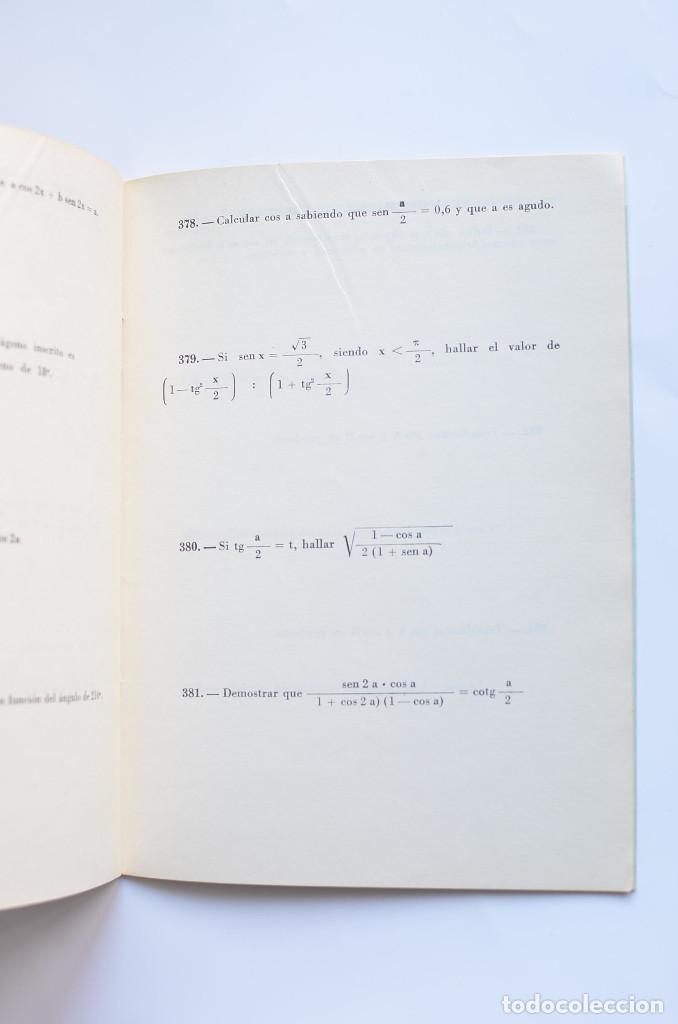 a cos 2x + b sen 2x = a.
inscrito es
de 18º.
2a
función del ángulo de 210º.
378. — Calcular cos a sabiendo que sen a/2 = 0,6 y que a es agudo.
379. — Si sen x = √3/2, siendo x < π/2, hallar el valor de
(1 — tg² x/2) : (1 + tg² x/2)
380. — Si tg a/2 = t, hallar √(1 — cos a / 2 (1 + sen a))
381. — Demostrar que sen 2 a · cos a / 1 + cos 2 a) (1 — cos a) = cotg a/2
todocoleccion